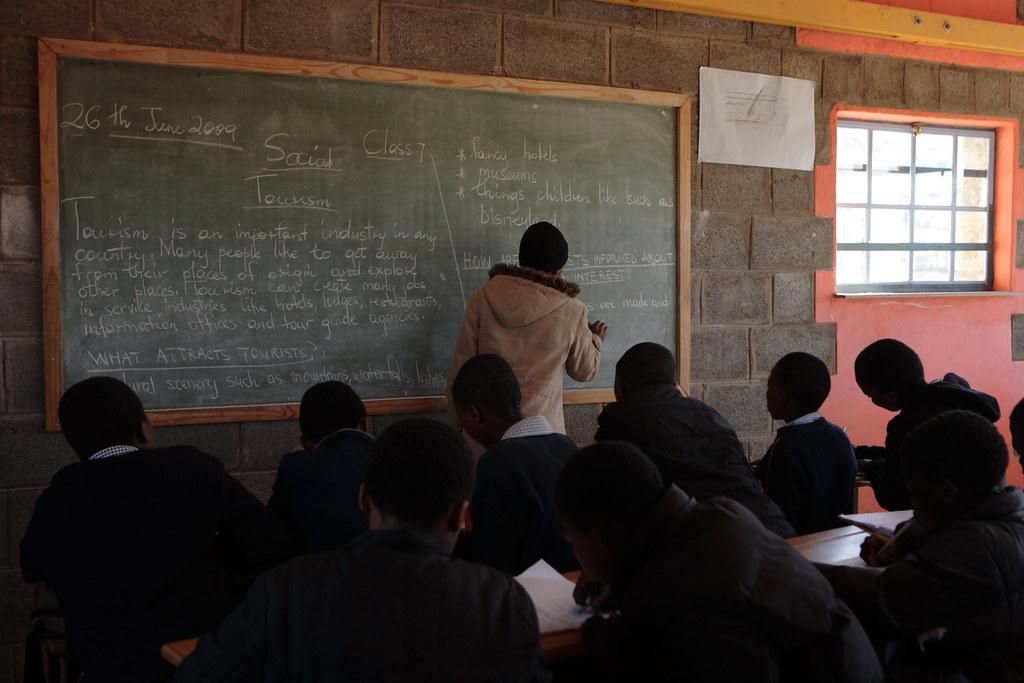 26th June 2009
Social
Class 7
Tourism
Tourism is an important industry in any
country. Many people like to get away
from their places of origin and explore
other places. Tourism can create many jobs
in service industries like hotels, lodges, restaurants,
information offices and tour guide agencies.
WHAT ATTRACTS TOURISTS?
natural scenery such as mountains, waterfalls, lakes
* fancy hotels
* museums
* things children like such as
Disneyland
HOW ARE INFORMED ABOUT
INTEREST
are made and